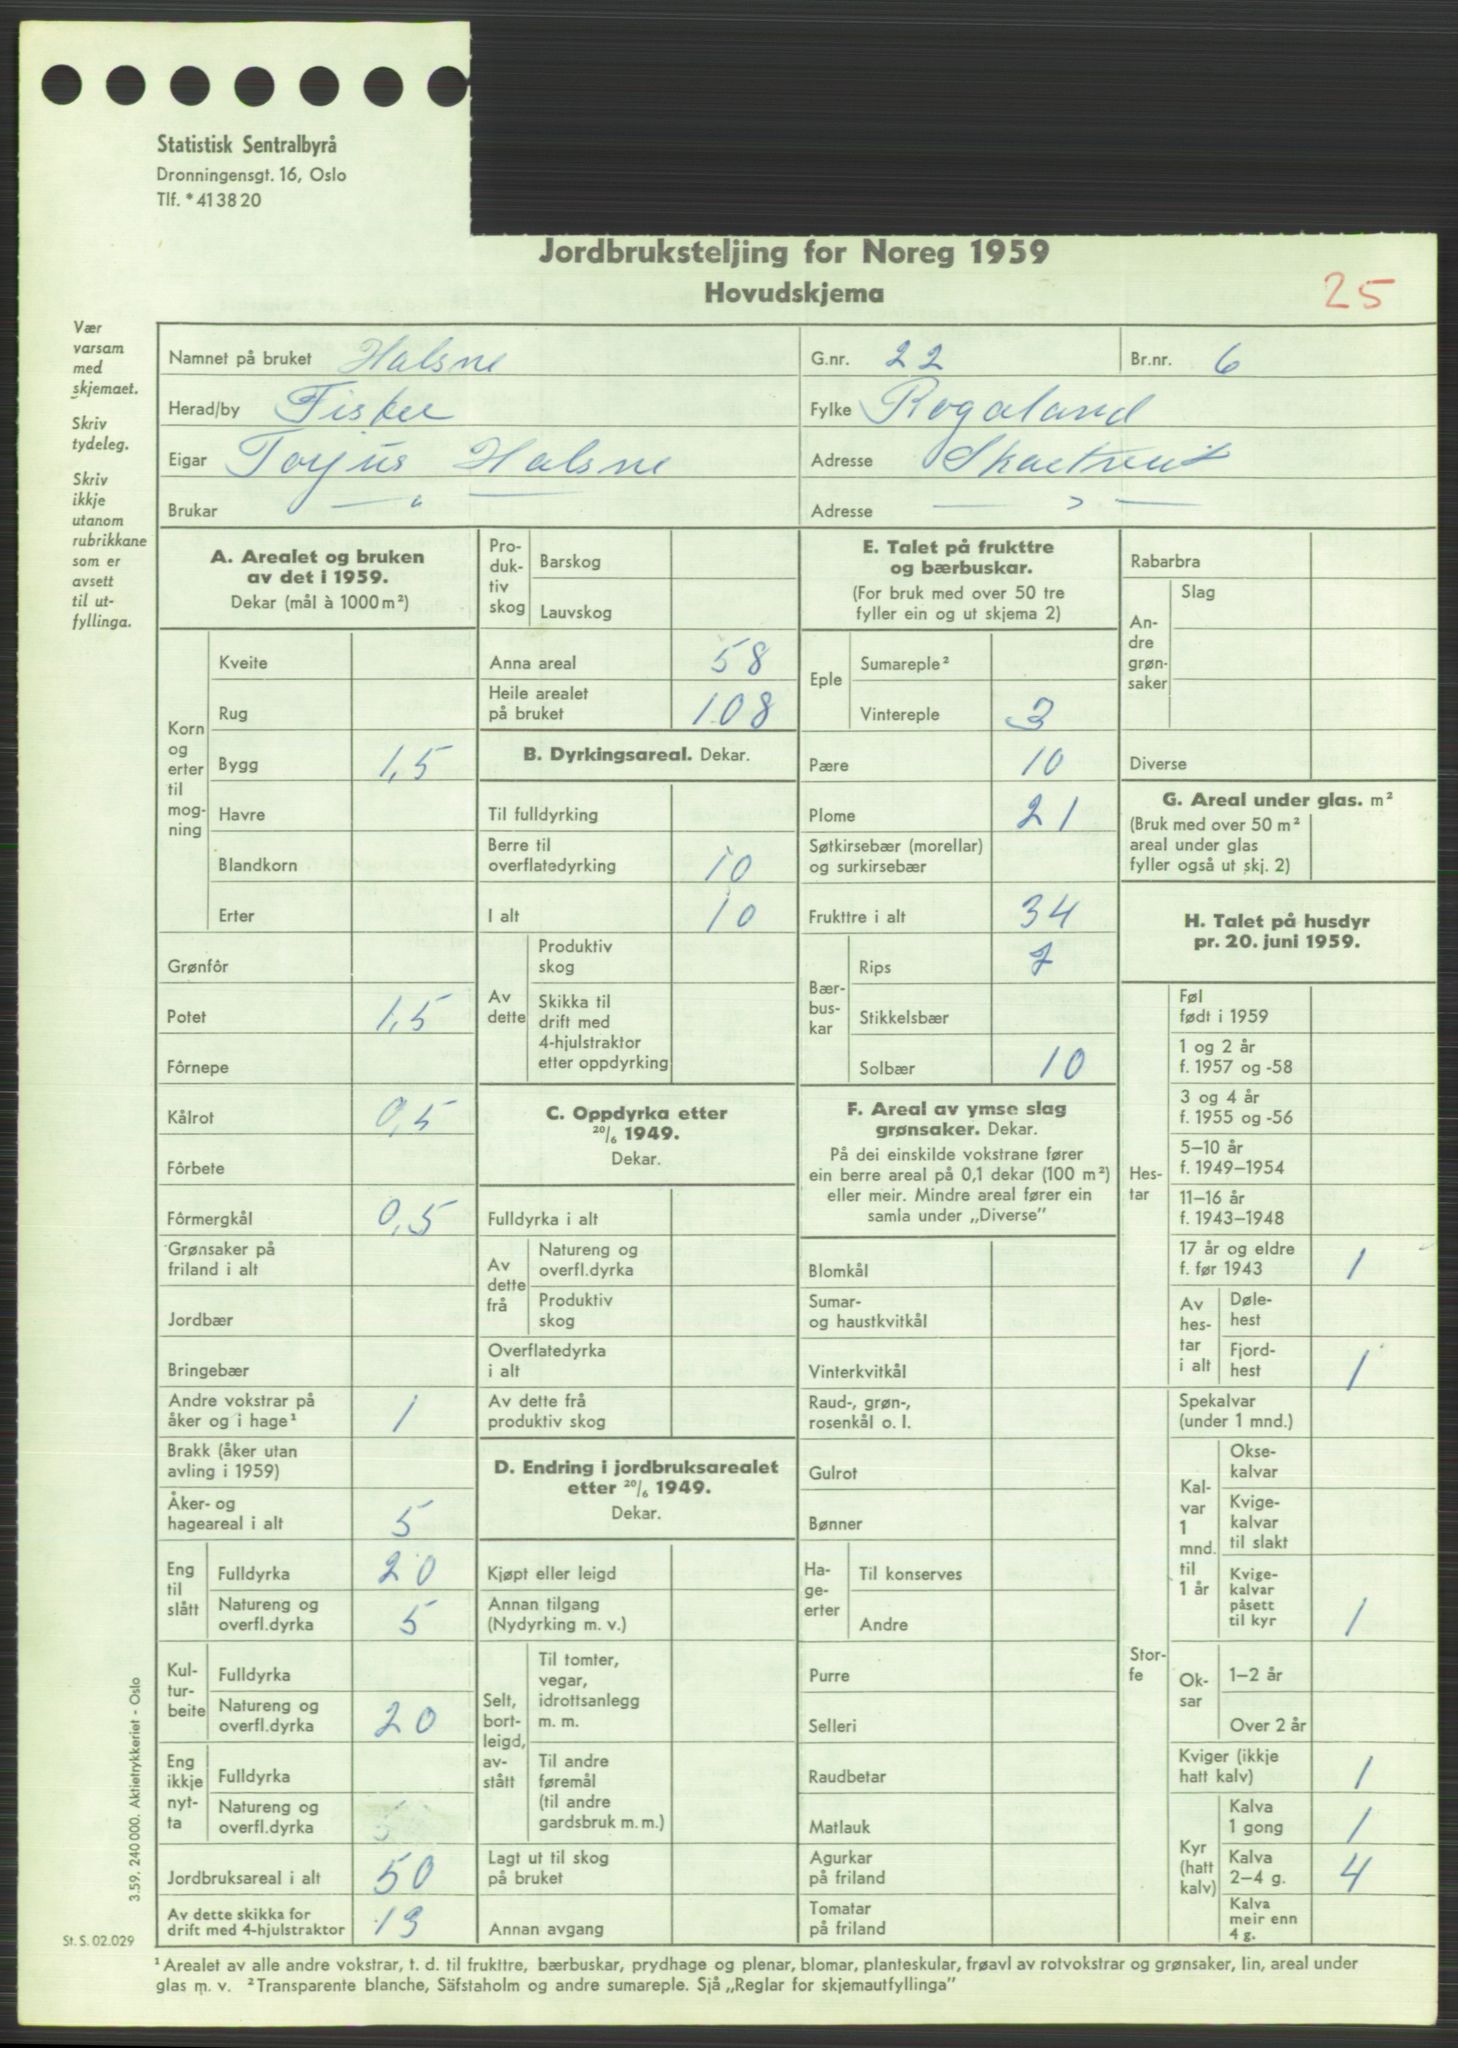 Statistisk Sentralbyrå
Dronningensgt. 16, Oslo
Tlf. * 41 38 20
Jordbruksteljing for Noreg 1959
Hovudskjema
25
Vær
varsam
med
skjemaet.
Skriv
tydeleg.
Skriv
ikkje
utanom
rubrikkane
som er
avsett
til ut-
fyllinga.
Namnet på bruket Halsne G.nr. 22 Br.nr. 6
Herad/by Fister Fylke Rogaland
Eigar Torjus Halsne Adresse
Brukar — " — Adresse — " —
A. Arealet og bruken
av det i 1959.
Dekar (mål à 1000 m²)
Korn og erter til mog-ning
Kveite
Rug
Bygg 1,5
Havre
Blandkorn
Erter
Grønfôr
Potet 1,5
Fôrnepe
Kålrot 0,5
Fôrbete
Fôrmergkål 0,5
Grønsaker på
friland i alt
Jordbær
Bringebær
Andre vokstrar på
åker og i hage¹ 1
Brakk (åker utan
avling i 1959)
Åker- og
hageareal i alt 5
Eng til slått
Fulldyrka 20
Natureng og
overfl.dyrka 5
Kul-tur-beite
Fulldyrka
Natureng og
overfl.dyrka 20
Eng ikkje nyt-ta
Fulldyrka
Natureng og
overfl.dyrka
Jordbruksareal i alt 50
Av dette skikka for
drift med 4-hjulstraktor 19
Pro-duk-tiv skog
Barskog
Lauvskog
Anna areal 58
Heile arealet
på bruket 108
B. Dyrkingsareal. Dekar.
Til fulldyrking
Berre til
overflatedyrking 10
I alt 10
Av dette
Produktiv
skog
Skikka til
drift med
4-hjulstraktor
etter oppdyrking
C. Oppdyrka etter
20/6 1949.
Dekar.
Fulldyrka i alt
Av dette frå
Natureng og
overfl.dyrka
Produktiv
skog
Overflatedyrka
i alt
Av dette frå
produktiv skog
D. Endring i jordbruksarealet
etter 20/6 1949.
Dekar.
Kjøpt eller leigd
Annan tilgang
(Nydyrking m. v.)
Selt, bort-leigd, av-stått
Til tomter,
vegar,
idrottsanlegg
m. m.
Til andre
føremål
(til andre
gardsbruk m. m.)
Lagt ut til skog
på bruket
Annan avgang
E. Talet på frukttre
og bærbuskar.
(For bruk med over 50 tre
fyller ein og ut skjema 2)
Eple
Sumareple²
Vintereple 3
Pære 10
Plome 21
Søtkirsebær (morellar)
og surkirsebær
Frukttre i alt 34
Bær-bus-kar
Rips 7
Stikkelsbær
Solbær 10
F. Areal av ymse slag
grønsaker. Dekar.
På dei einskilde vokstrane fører
ein berre areal på 0,1 dekar (100 m²)
eller meir. Mindre areal fører ein
samla under „Diverse”
Blomkål
Sumar-
og haustkvitkål
Vinterkvitkål
Raud-, grøn-,
rosenkål o. l.
Gulrot
Bønner
Ha-ge-erter
Til konserves
Andre
Purre
Selleri
Raudbetar
Matlauk
Agurkar
på friland
Tomatar
på friland
Rabarbra
An-dre grøn-saker
Slag
Diverse
G. Areal under glas. m²
(Bruk med over 50 m²
areal under glas
fyller også ut skj. 2)
H. Talet på husdyr
pr. 20. juni 1959.
Hes-tar
Føl
født i 1959
1 og 2 år
f. 1957 og -58
3 og 4 år
f. 1955 og -56
5–10 år
f. 1949–1954
11–16 år
f. 1943–1948
17 år og eldre
f. før 1943 1
Av hes-tar i alt
Døle-
hest
Fjord-
hest 1
Stor-fe
Spekalvar
(under 1 mnd.)
Kal-var 1 mnd. til 1 år
Okse-
kalvar
Kvige-
kalvar
til slakt
Kvige-
kalvar
påsett
til kyr 1
Ok-sar
1–2 år
Over 2 år
Kviger (ikkje
hatt kalv) 1
Kyr (hatt kalv)
Kalva
1 gong 1
Kalva
2–4 g. 4
Kalva
meir enn
4 g.
3.59. 240 000. Aktietrykkeriet - Oslo
St. S. 02.029
¹ Arealet av alle andre vokstrar, t. d. til frukttre, bærbuskar, prydhage og plenar, blomar, planteskular, frøavl av rotvokstrar og grønsaker, lin, areal under
glas m. v. ² Transparente blanche, Säfstaholm og andre sumareple. Sjå „Reglar for skjemautfyllinga”